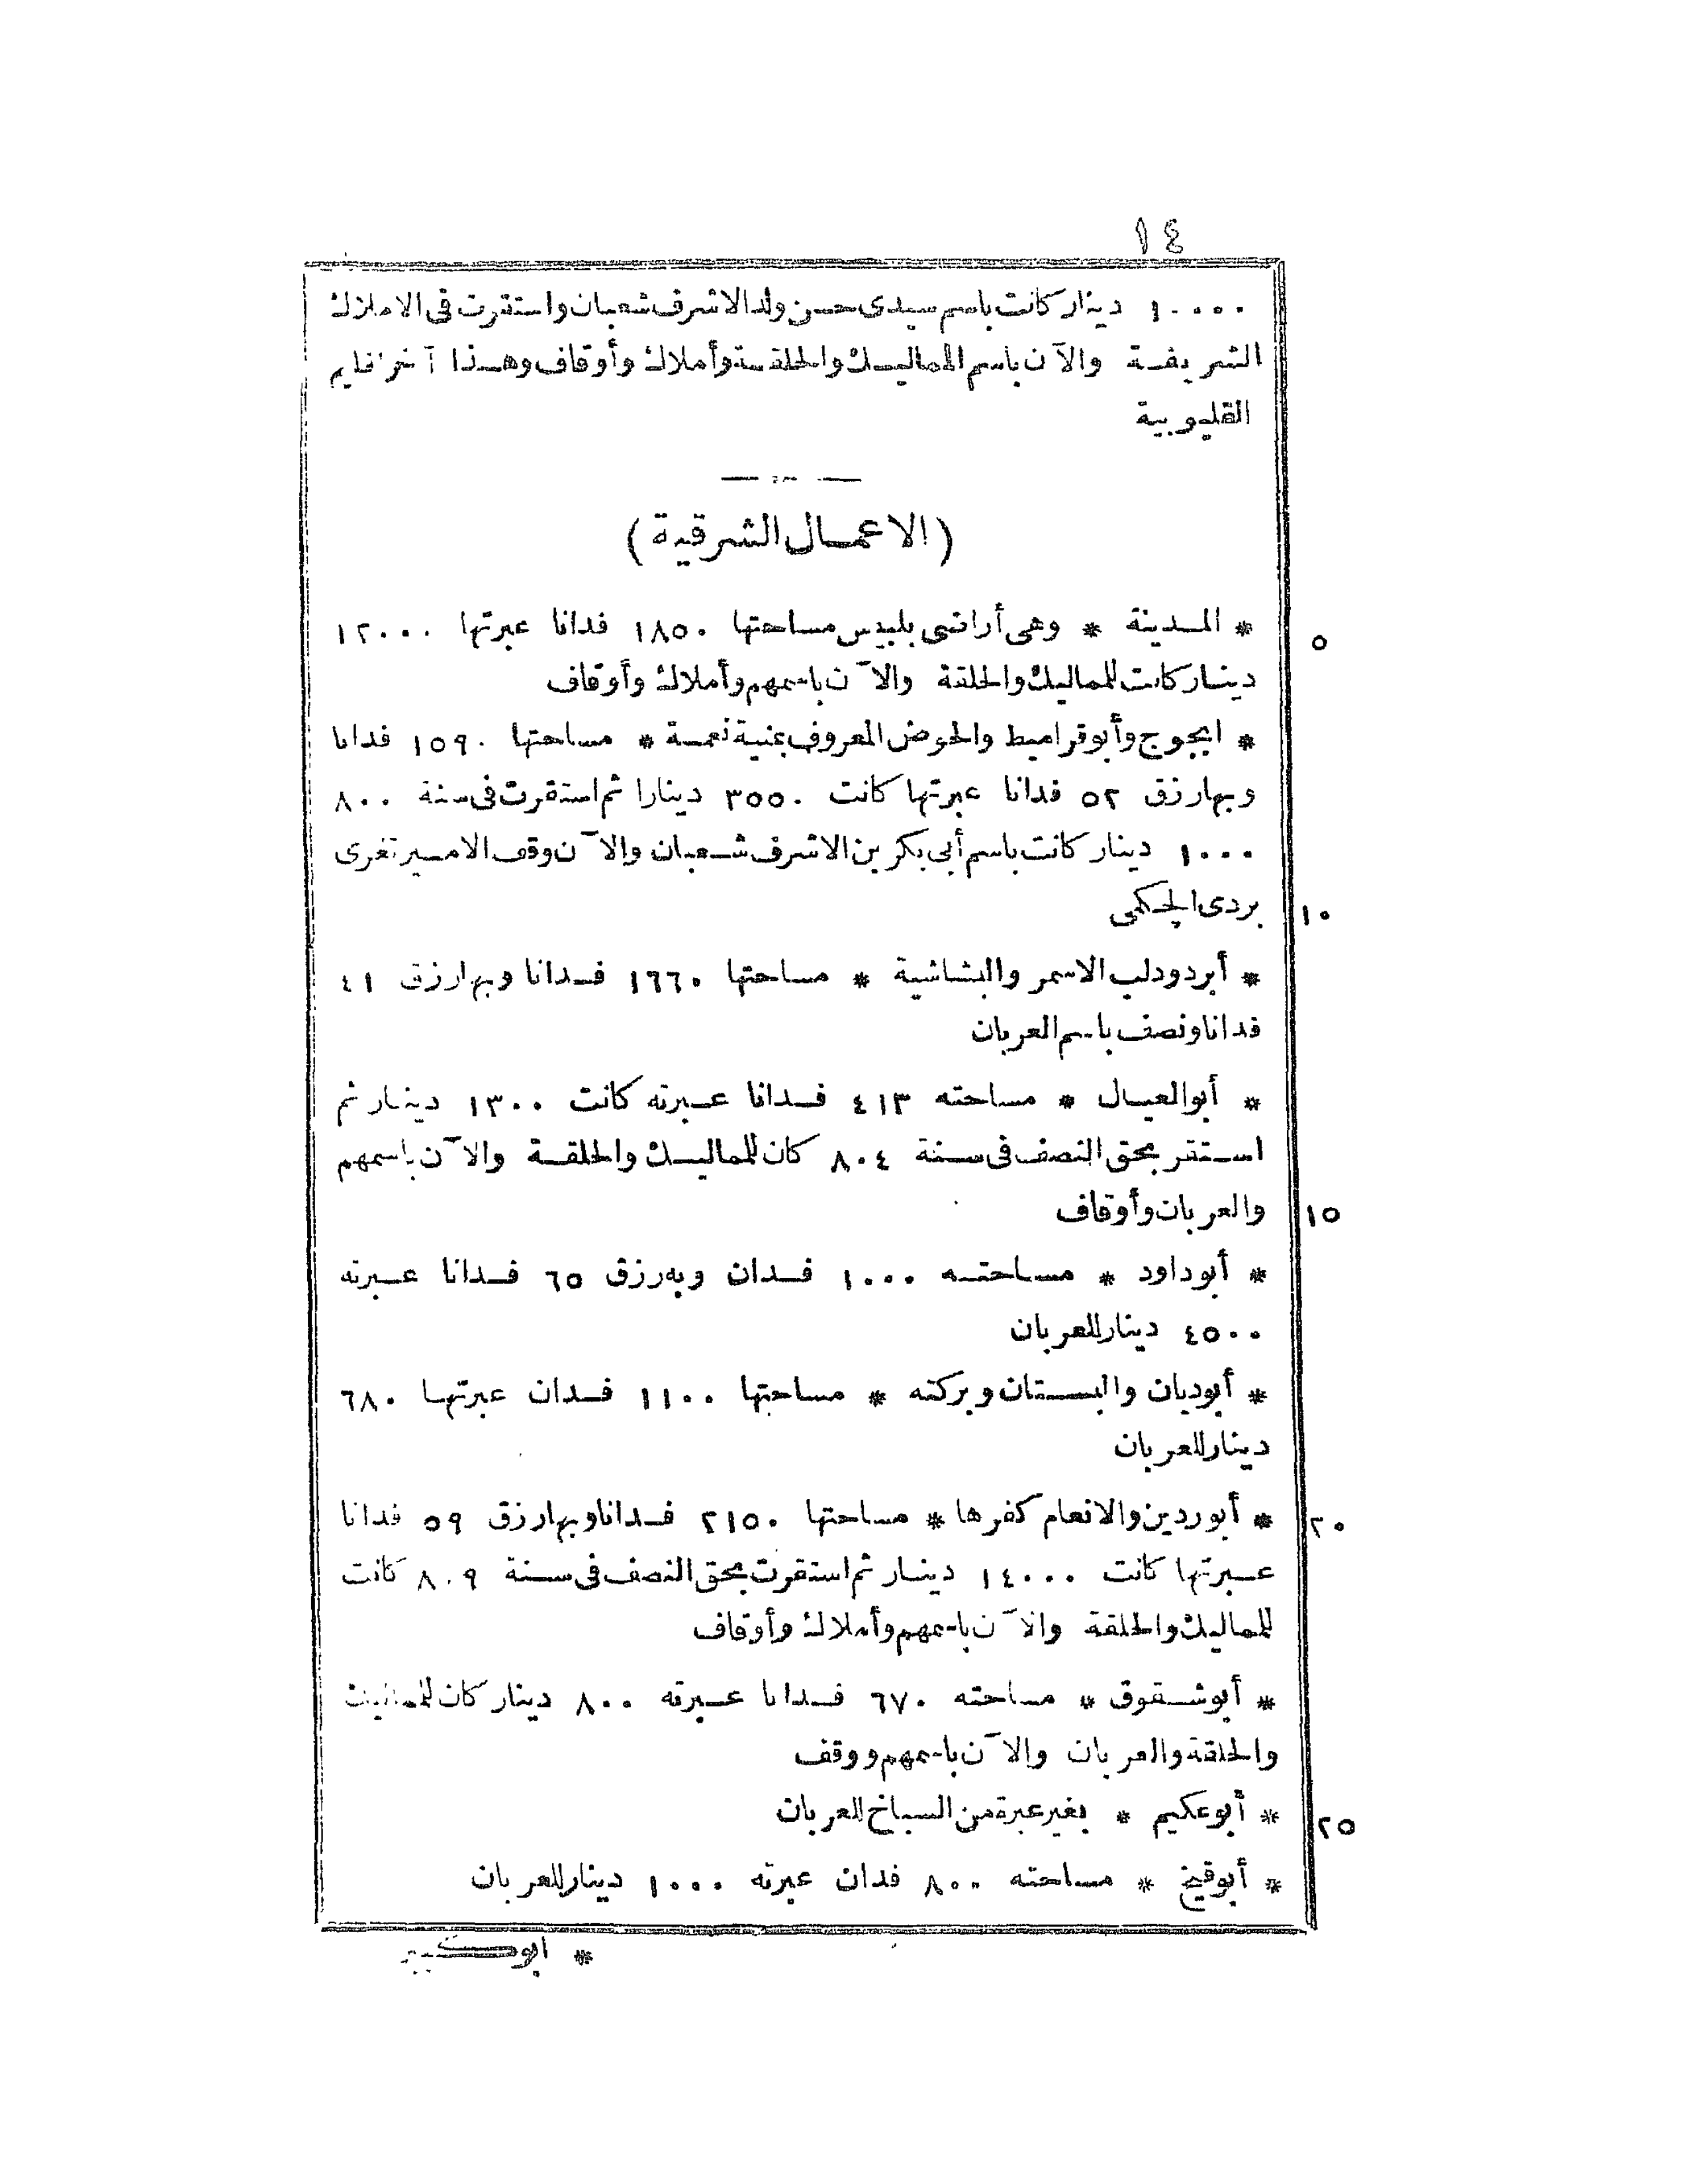 ١٤
١٠٠٠٠ دينار كانت باسم سيدى حسن ولد الاشرف شعبان واستقرت فى الاملاك
الشريفة والآن باسم المماليك والحلقة وأملاك وأوقاف وهذا آخر اقليم
القليوبية
(الاعمال الشرقية)
* المدينة * وهى أراضى بلبيس مساحتها ١٨٥٠ فدانا عبرتها ١٢٠٠٠
٥
دينار كانت للمماليك والحلقة والآن باسمهم وأملاك وأوقاف
* ايجوج وأبو قراميط والحوض المعروف بمنية نعمة * مساحتها ١٥٩٠ فدانا
وبها رزق ٥٢ فدانا عبرتها كانت ٣٥٥٠ دينارا ثم استقرت فى سنة ٨٠٠
١٠٠٠ دينار كانت باسم أبى بكر بن الاشرف شعبان والآن وقف الامير تغرى
بردى الجكمى
١٠
* أبر دودلب الاسمر والبشاشية * مساحتها ١٦٦٠ فدانا وبها رزق ٤١
فدانا ونصف باسم العربان
* أبو العيال * مساحته ٤١٣ فدانا عبرته كانت ١٣٠٠ دينار ثم
استقر بحق النصف فى سنة ٨٠٤ كان للمماليك والحلقة والآن باسمهم
والعربان وأوقاف
١٥
* أبو داود * مساحته ١٠٠٠ فدان وبه رزق ٦٥ فدانا عبرته
٤٥٠٠ دينار للعربان
* أبو ديان والبستان وبركته * مساحتها ١١٠٠ فدان عبرتها ٦٨٠
دينار للعربان
* أبو ردين والانعام كفرها * مساحتها ٢١٥٠ فدانا وبها رزق ٥٩ فدانا
٢٠
عبرتها كانت ١٤٠٠٠ دينار ثم استقرت بحق النصف فى سنة ٨٠٩ كانت
للمماليك والحلقة والآن باسمهم وأملاك وأوقاف
* أبو شقوق * مساحته ٦٧٠ فدانا عبرته ٨٠٠ دينار كان للمماليك
والحلقة والعربان والآن باسمهم ووقف
* أبو عكيم * بغير عبرة من السباخ للعربان
٢٥
* أبو قيخ * مساحته ٨٠٠ فدان عبرته ١٠٠٠ دينار للعربان
* ابو كبير